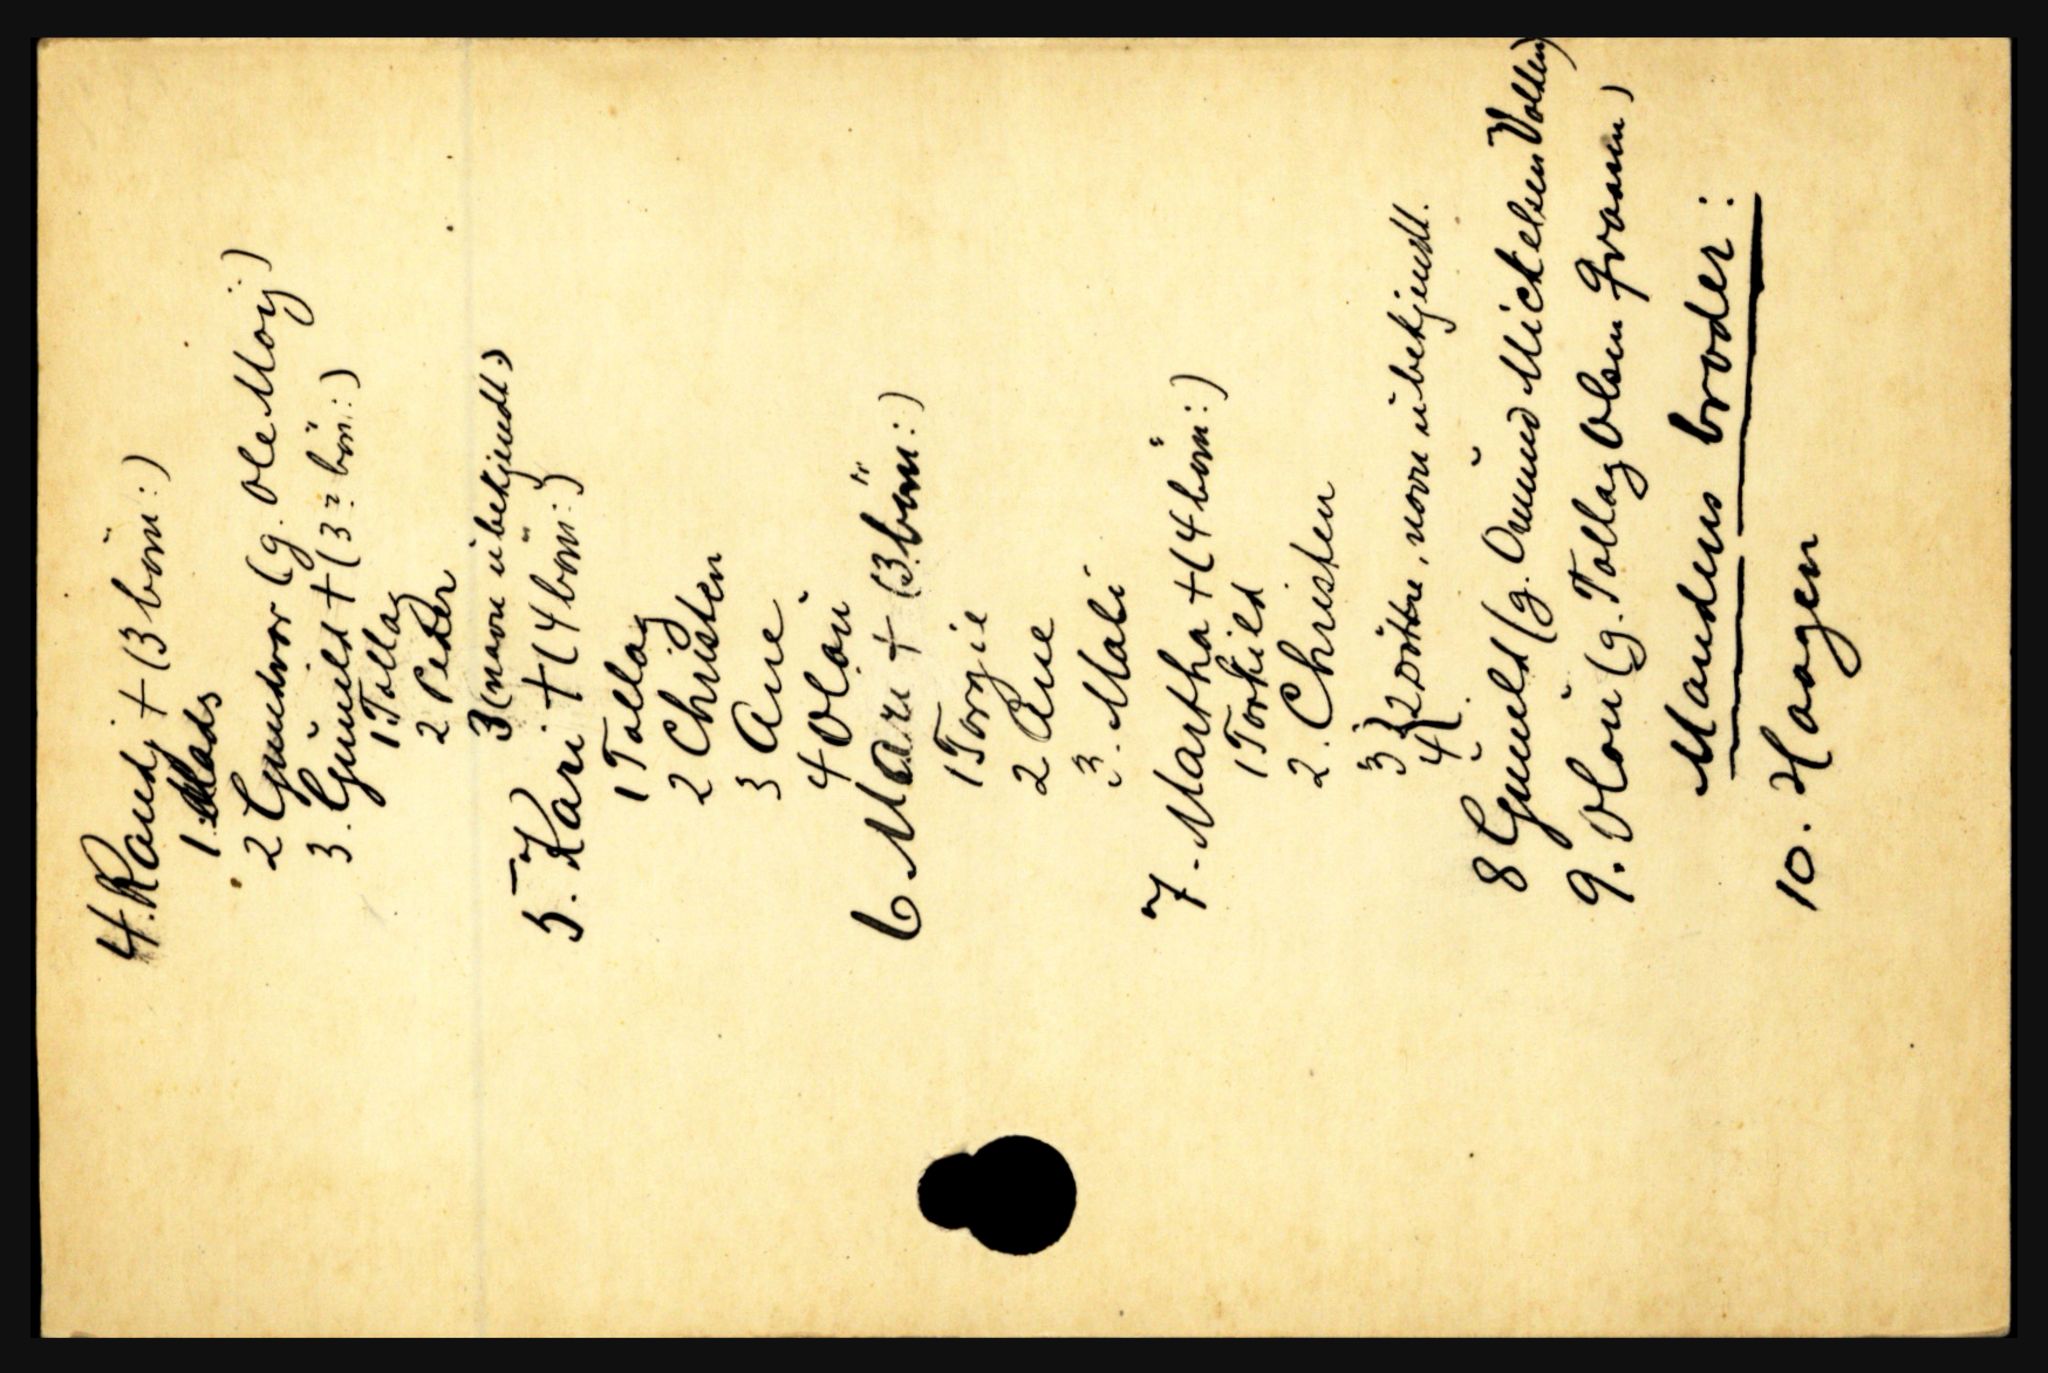 4. Randj + (3 börn:)
1. Mads
2 Gundvor (g. Ole Moij)
3. Gunild + (3 börn:)
1 Tollag
2 Peder
3 (navn ubekjendt)
5. Kari + (4 börn:)
1 Tollag
2 Christen
3 Ane
4 Olou
6 Mari + (3 börn:)
1 Torgie
2 Ane
3. Mali
7. Martha + (4 börn:)
1 Torkild
2. Christen
3 } 2 döttre, navn ubekjendt.
4
8 Gunild (g. Omund Mickelsen Valken)
9. Olou (g. Tollag Olsen Qvaasen)
Mandens broder:
10. Haagen